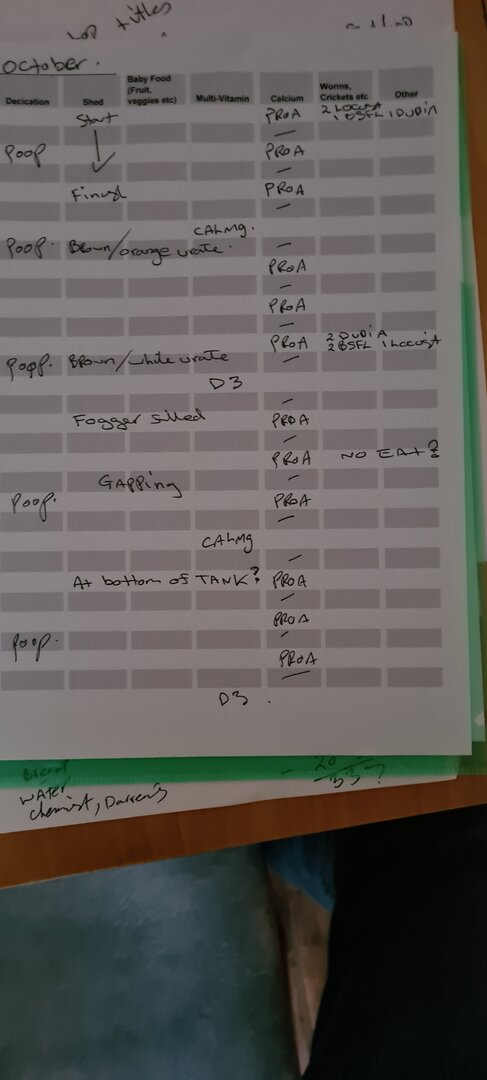 titles
October.
Baby Food (Fruit, veggies etc)
Worms, Crickets etc
Decication Shed Multi-Vitamin Calcium Other
Start PROA 2 Locust 1 DUBIA
1 BSFL
Poop PROA
Finish PROA
CALMg.
Poop. Brown/orange urate.
PROA
PROA
PROA 2 DUBIA
2 BSFL 1 Locust
Poop. Brown/white urate
D3
Fogger filled PROA
PROA NO EAT?
Gapping
Poop. PROA
CALMg
At bottom of TANK? PROA
PROA
Poop.
PROA
D3.
Bread
WATER
Chemist, Darren's
20
33 ?